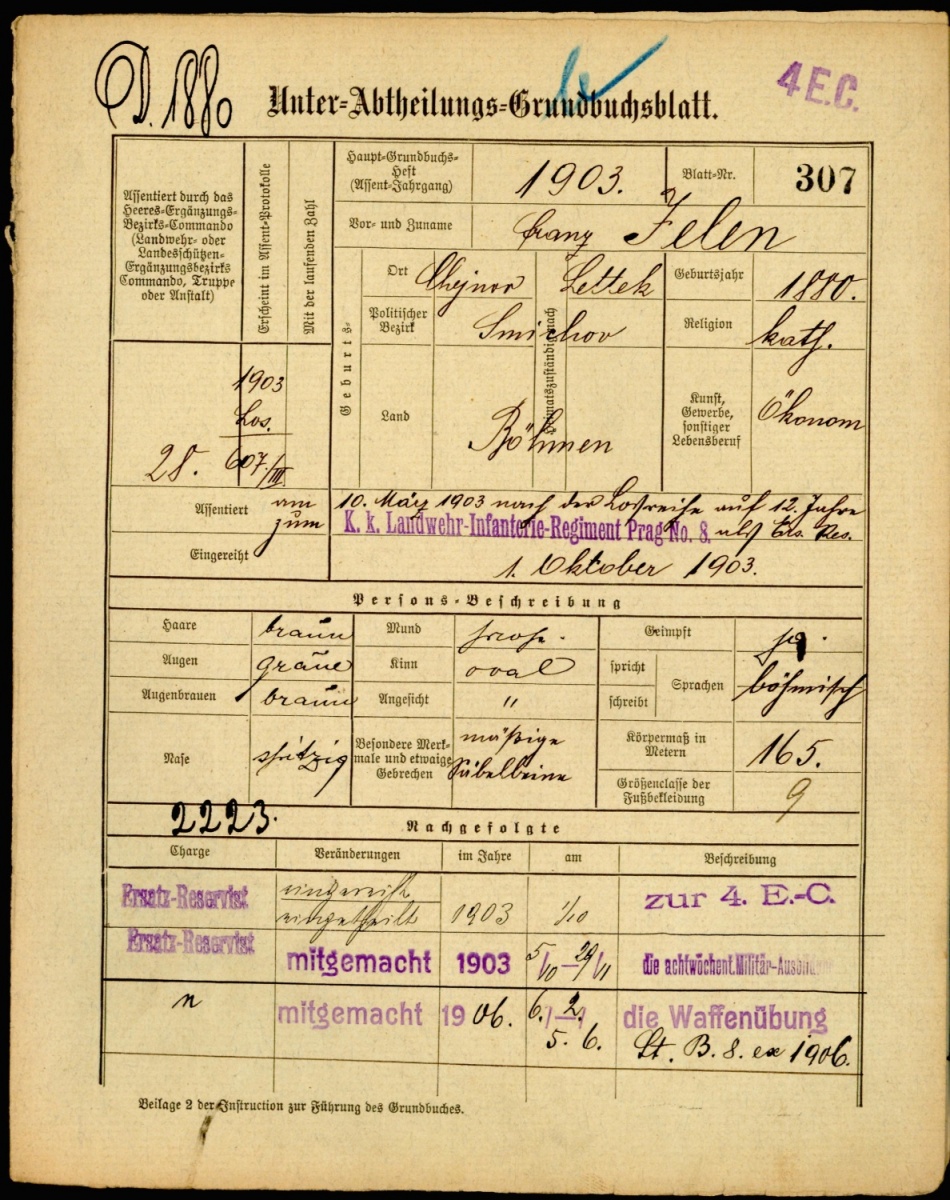 D. 1880
Unter-Abtheilungs-Grundbuchsblatt.
4 E.C.
Assentiert durch das
Heeres-Ergänzungs-
Bezirks-Commando
(Landwehr- oder
Landesschützen-
Ergänzungsbezirks
Commando, Truppe
oder Anstalt)
Erscheint im Assent-Protokolle
Mit der laufenden Zahl
Haupt-Grundbuchs-
Heft
(Assent-Jahrgang)
1903.
Blatt-Nr.
307
Vor- und Zuname
Franz Jelen
Geburts-
Ort
Chejnov
Heimatszuständig nach
Lettek
Geburtsjahr
1880.
Politischer
Bezirk
Smichov
Religion
kath.
Land
Böhmen
Kunst,
Gewerbe,
sonstiger
Lebensberuf
Ökonom
1903
Los.
28. 607/III
Assentiert
am 10. März 1903 nach der Losreihe auf 12 Jahre
zum K. k. Landwehr-Infanterie-Regiment Prag No. 8. als Ers. Res.
Eingereiht
1. Oktober 1903.
Persons-Beschreibung
Haare braun
Mund
Geimpft ja.
Augen graue
Kinn oval
spricht
schreibt
Sprachen böhmisch
Augenbrauen braun
Angesicht "
Nase spitzig
Besondere Merk-
male und etwaige
Gebrechen
mäßige
Säbelbeine
Körpermaß in
Metern
165.
Größenclasse der
Fußbekleidung
9
2223.
Nachgefolgte
Charge Veränderungen im Jahre am Beschreibung
Ersatz-Reservist eingereiht
eingetheilt 1903 1/10 zur 4. E.-C.
Ersatz-Reservist mitgemacht 1903 5/10-29/11 die achtwöchent. Militär-Ausbildung
" mitgemacht 1906. die Waffenübung
Lt. B. 8. ex 1906.
Beilage 2 der Instruction zur Führung des Grundbuches.